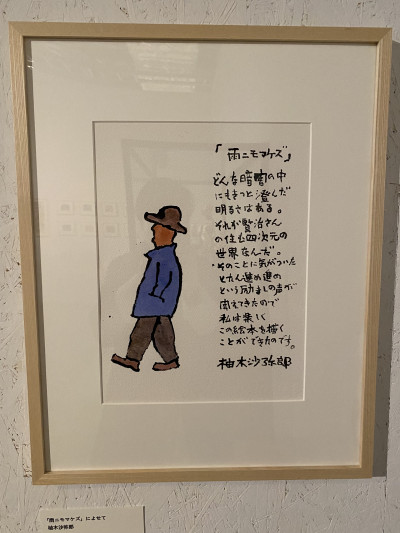 「雨ニモマケズ」
どんな暗闇の中
にもきっと澄んだ
明るさはある。
それが賢治さん
の住む四次元の
世界なんだ。
そのことに気がついた
とたん進め進め
という励ましの声が
聞えてきたので
私は楽しく
この絵本を描く
ことができたのです。
柚木沙弥郎
「雨ニモマケズ」によせて
柚木沙弥郎